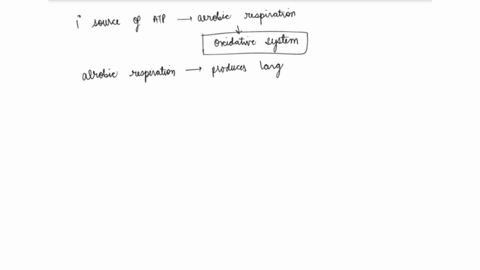 i° source of ATP → aerobic respiration
↓
oxidative system
aerobic respiration → produces larg